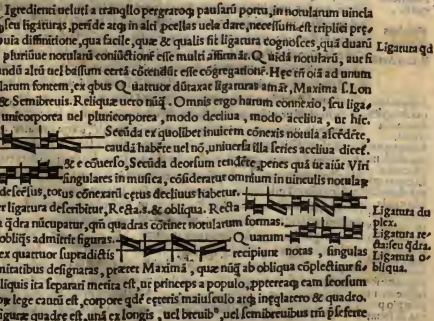 Igredienti ueluti a tranqllo pausarū portu, in notularum uincla
seu ligaturas, perīde atq; in alti pcellas uela dare, necessum est triplici pre
uia diffinitione, qua facile, quæ & qualis sit ligatura cognosces, quā duarū
pluriūue notularū coniūctionē esse multi affirmāt. Quidā notularū, aut si
undā altū uel bassum certā cōtendūt esse cōgregationē. Hęc eñ oīa ad unum
larum fontem, ex qbus Quatuor dūtaxat ligaturas amāt, Maxima s. Lon
& Semibreuis. Reliquæ uero nūq̄. Omnis ergo harum connexio, seu liga
unicorporea uel pluricorporea, modo decliua, modo accliua, ut hic.
Secūda ex quolibet inuicem cōnexis notula ascēdēte,
caudā habēte uel nō, uniuersa illa series accliua dicet.
& e cōuerso, Secūda deorsum tendēte, penes quā ut aiūt Viri
singulares in musica, cōsideratur omnium in uinculis notulaꝝ
descēsus, totus cōnexarū cętus decliuus habetur.
er ligatura describitur, Recta .s. & obliqua. Recta
a q̄dra nūcupatur, qm̄ quadras cōtinet notularum formas.
obliq̄s admittit figuras. Quarum
ex quattuor supradictis recipiunt notas, singulas
nitatibus designatas, præter Maximā, quæ nūq̄ ab obliqua cōplectitur fi
liquis ita separari merita est, ut princeps a populo, pptereaq; eam seorsum
lege cautū est, corpore qdē ceteris maiusculo atq; ineqlatero & quadro.
figuræ quadre est, unā ex longis, uel breuib⁹, uel semibreuibus tm̄ pseferre
Ligatura qd
Ligatura du
plex.
Ligatura re
cta: seu q̄dra.
Ligatura o
bliqua.